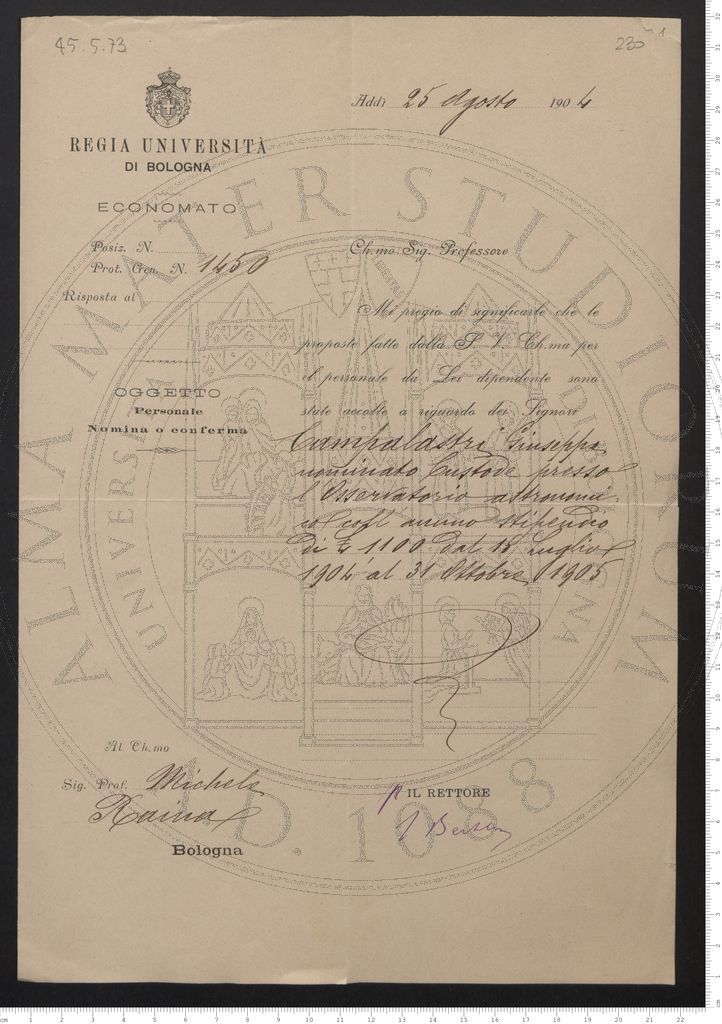 45.5.73
230
Addì 25 Agosto 1904
REGIA UNIVERSITÀ
DI BOLOGNA
ECONOMATO
Posiz. N.
Prot. Gen. N. 1450
Risposta al
OGGETTO
Personale
Nomina o conferma
Ch.mo Sig. Professore
Mi pregio di significarle che le
proposte fatte dalla S. V. Ch.ma per
il personale da Lei dipendente sono
state accolte a riguardo dei Signori
Campalastri Giuseppe
nominato Custode presso
l'Osservatorio astronomi-
co coll'annuo stipendio
di £ 1100 dal 18 Luglio
1904 al 31 Ottobre 1905
Al Ch.mo
Sig. Prof. Michele
Rajna
Bologna
p IL RETTORE
ALMA MATER STUDIORUM
A.D. 1088